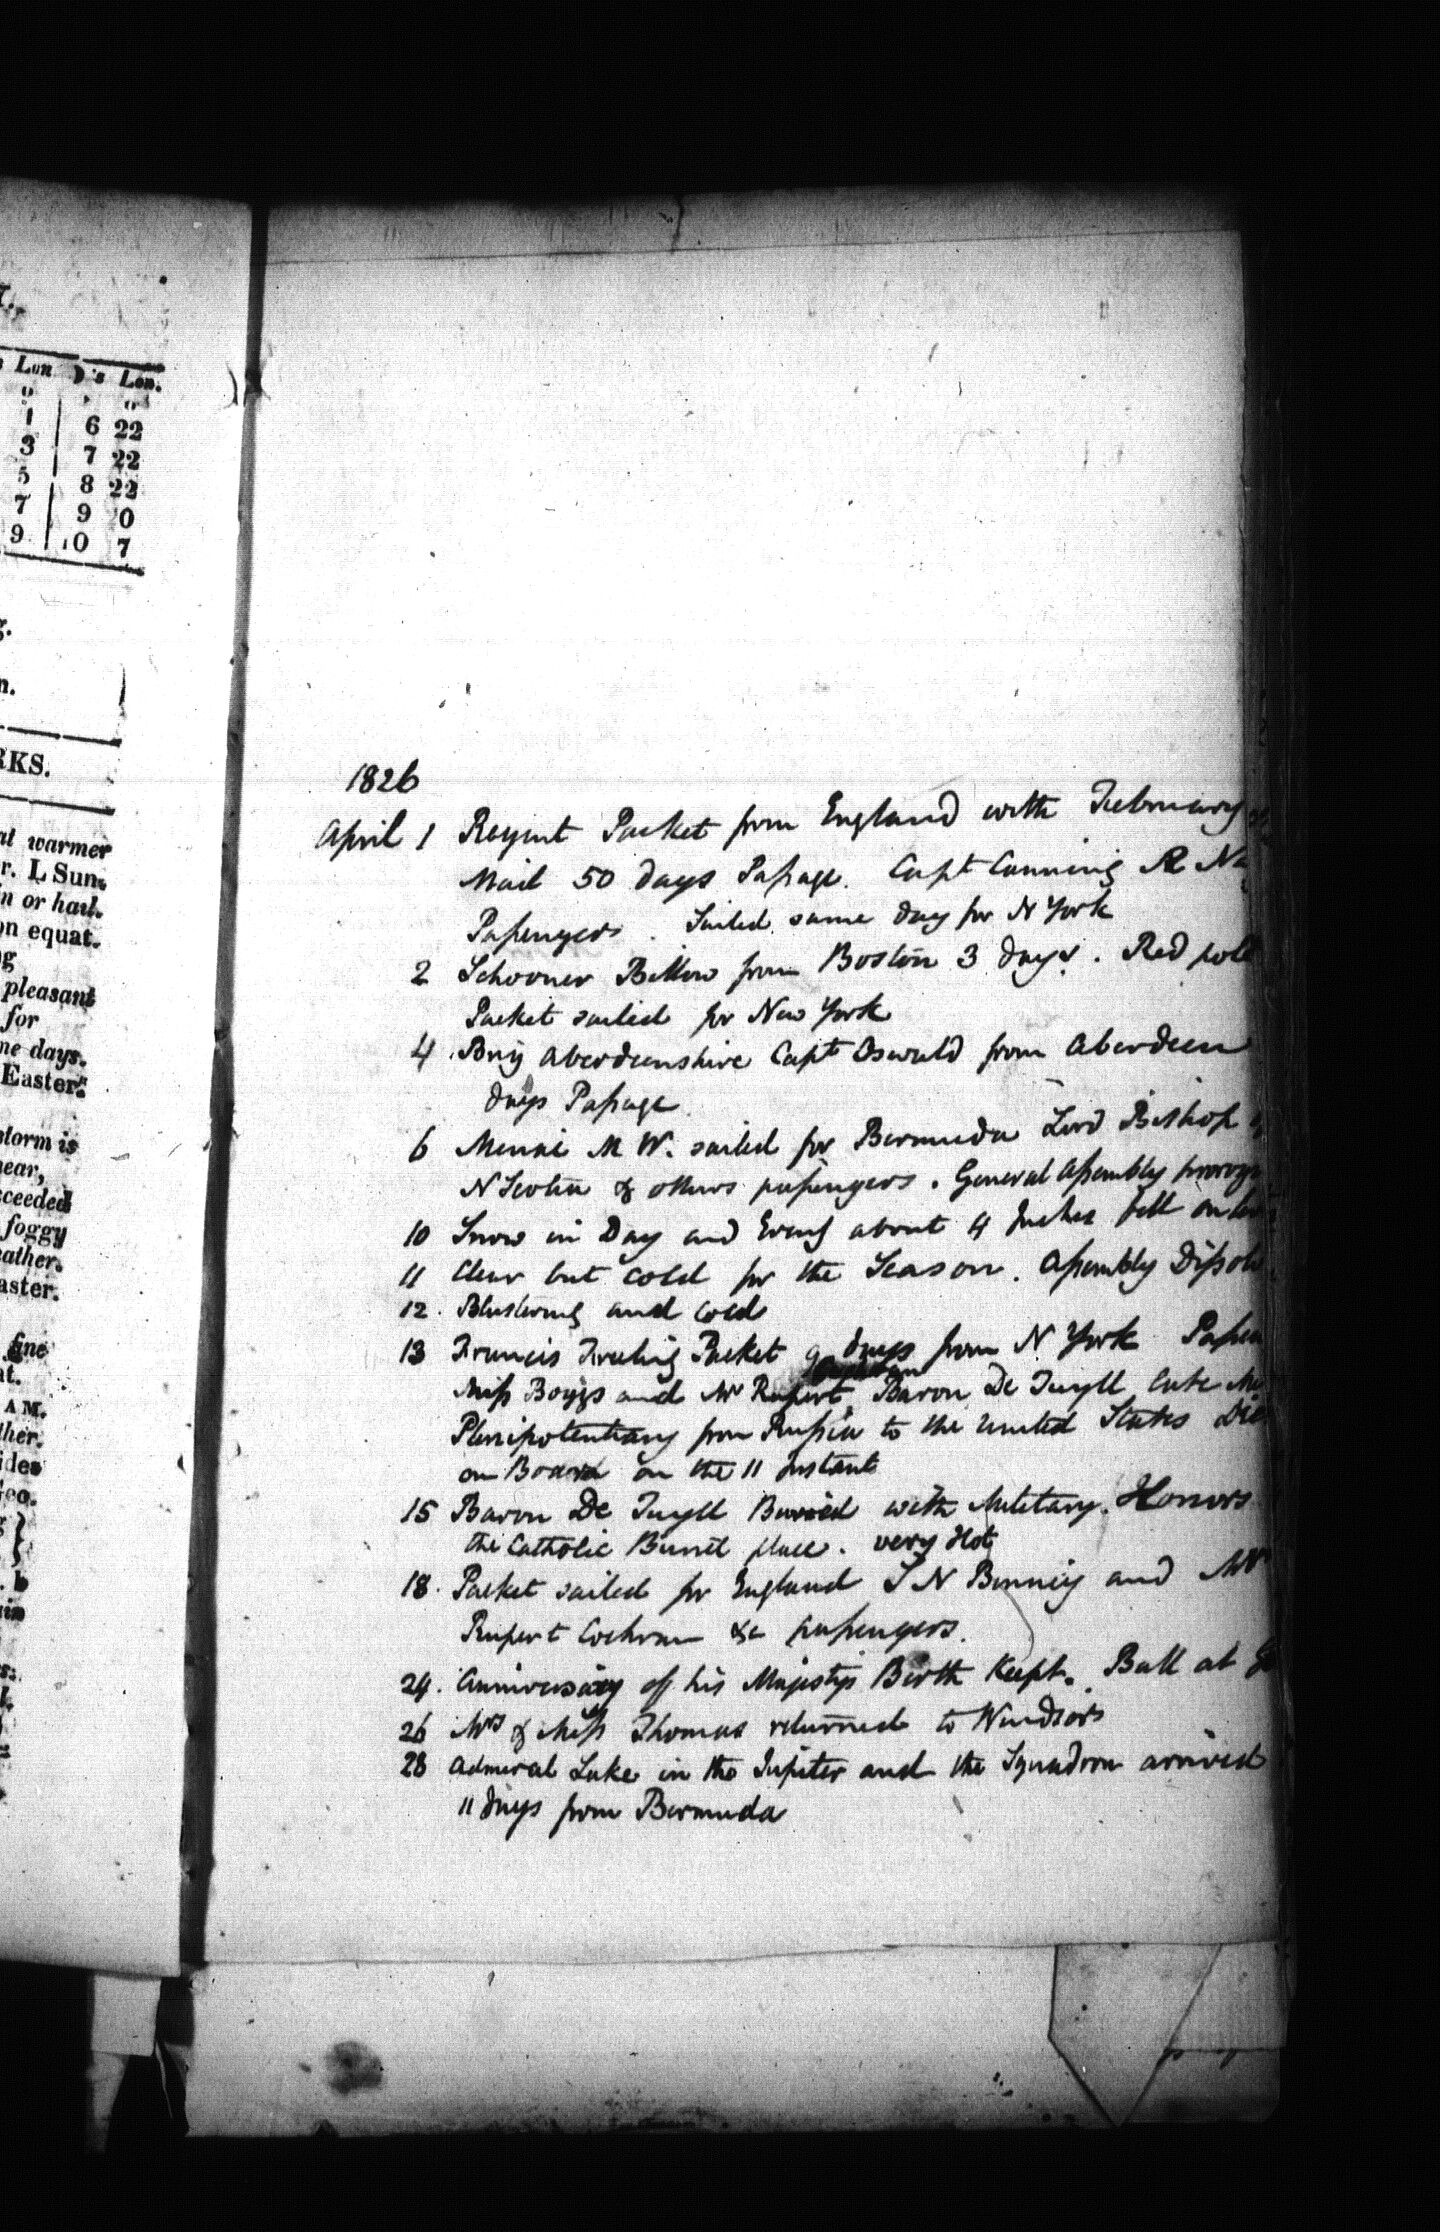 s Lon ☽'s Lon.
1 6 22
3 7 22
5 8 22
7 9 0
9 10 7
g.
n.
RKS.
al warmer
r. L Sun.
n or hail.
on equat.
g
pleasant
for
ne days.
Easter.
storm is
near,
cceeded
foggy
eather.
aster.
fine
at.
AM.
ther.
ides
Geo.
1826
April 1 Regent Packet from England with February
Mail 50 days Passage. Capt Canning R Na
Passengers. Sailed same day for N York
2 Schooner Billow from Boston 3 days. Red pole
Packet sailed for New York
4 Brig Aberdeenshire Capt Oswald from Aberdeen
days Passage
6 Menai M W. sailed for Bermuda Lord Bishop
N Scotia & others passengers. General Assembly prorog
10 Snow in Day and Eveng about 4 Inches fell on
11 Clear but cold for the Season. Assembly Dissolv
12. Blustering and cold
13 Francis Freeling Packet 9 days from N York Passen
Miss Boggs and Mr Rupert Cochran Baron De Tuyll late
Plenipotentiary from Russia to the United States Died
on Board on the 11 Instant
15 Baron De Tuyll Buried with Military Honors
the Catholic Buriel place. very Hot
18. Packet sailed for England S N Binney and Mr
Rupert Cochran &c passengers.
24. Anniversary of his Majestys Birth Keept. Ball at
26 Mrs & Miss Thomas returned to Windsor
28 Admiral Lake in the Jupiter and the Squadron arrived
11 days from Bermuda